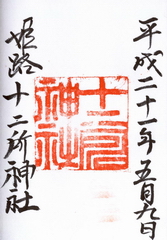 平成二十一年五月九日
十二所神社
姫路十二所神社